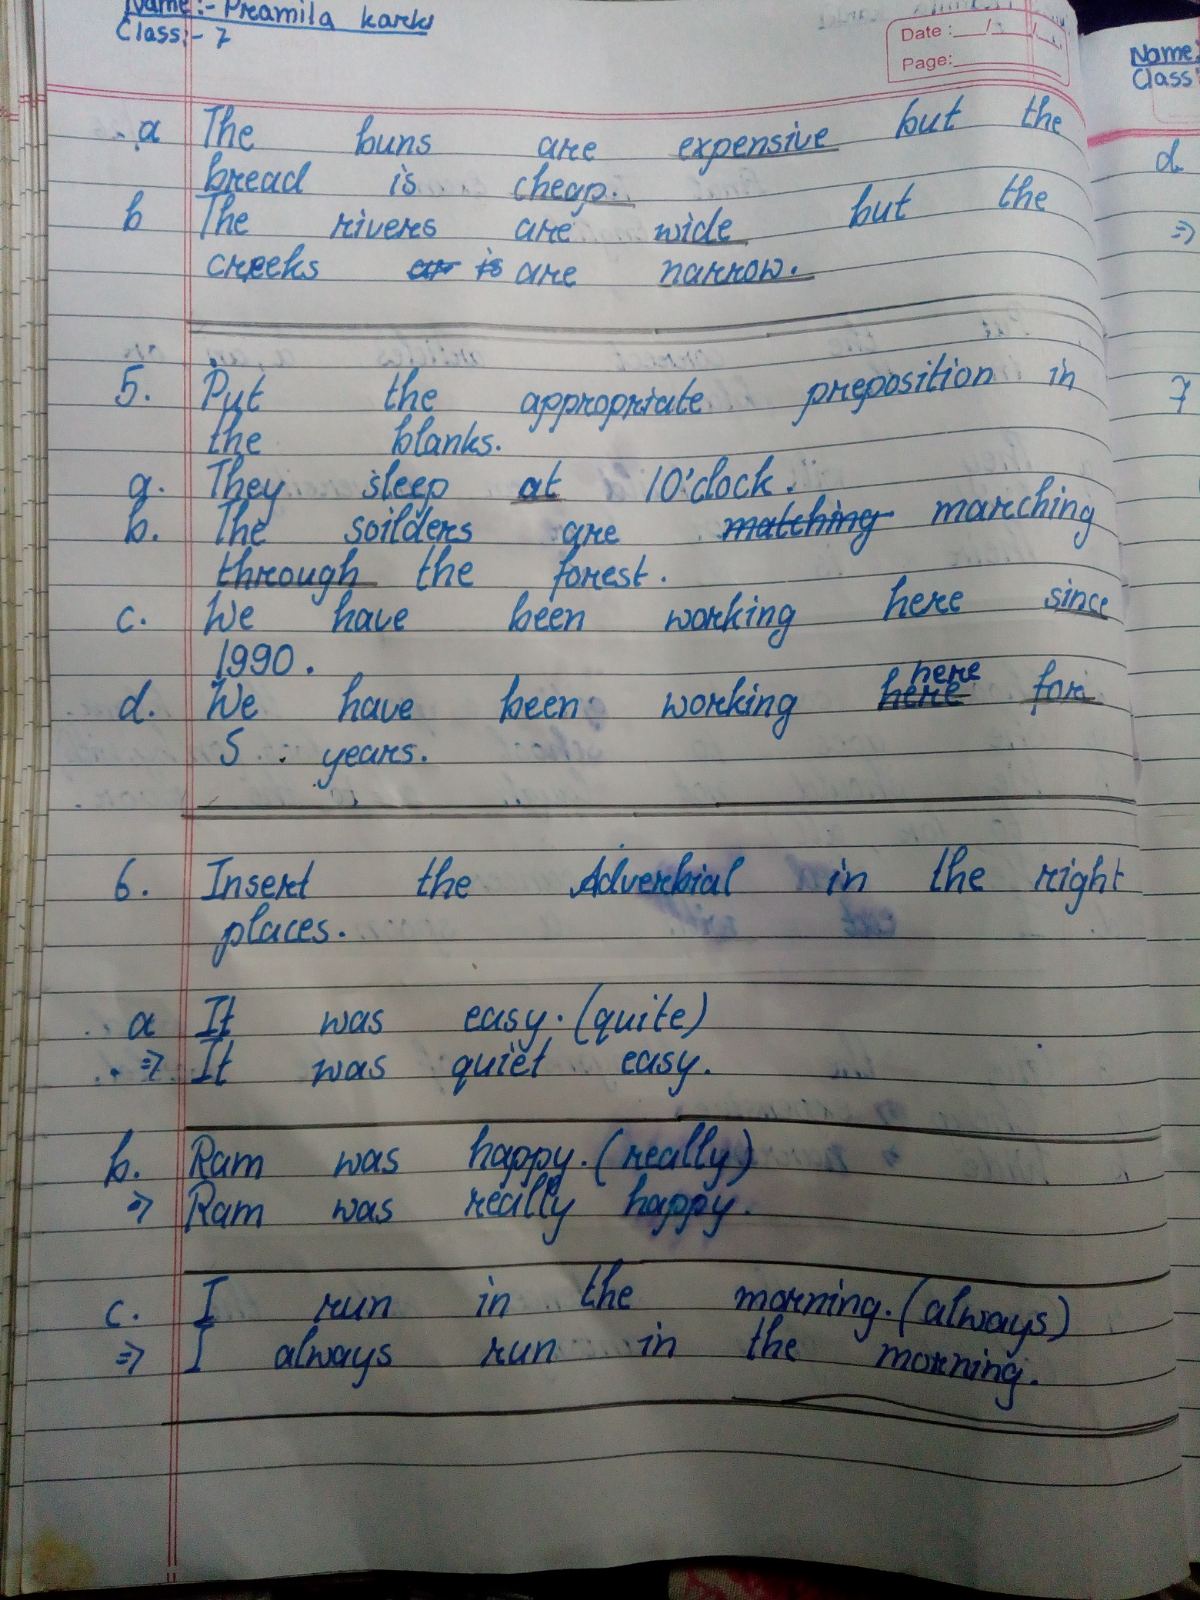 Name:- Pramila karki
Class:- 7
Date :__/__/__
Page:
a The buns are expensive but the
bread is cheap.
b The rivers are wide but the
creeks ar is are narrow.
5. Put the appropriate preposition in
the blanks.
a. They sleep at 10'clock.
b. The soilders are matching marching
through the forest.
c. We have been working here since
1990.
here
d. We have been working here for
5 years.
6. Insert the Adverbial in the right
places.
a It was easy. (quite)
⇒ It was quiet easy.
b. Ram was happy. (really)
⇒ Ram was really happy.
c. I run in the morning. (always)
⇒ I always run in the morning.
Name:
Class
d
⇒
7